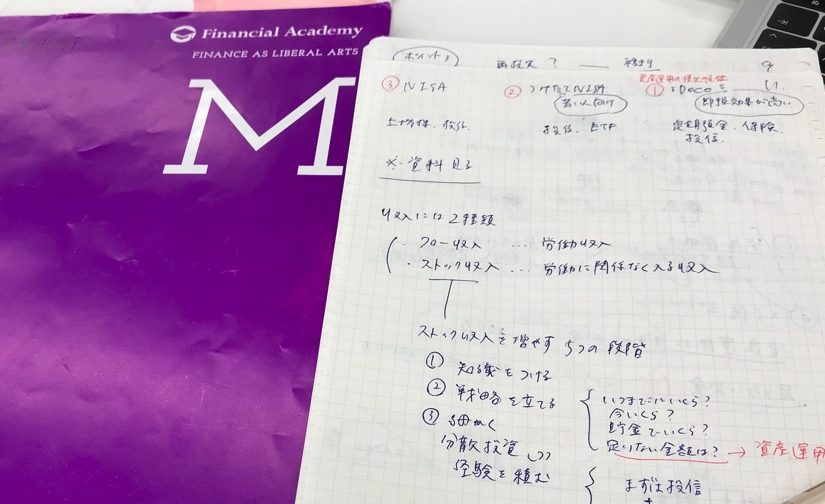 Financial Academy
FINANCE AS LIBERAL ARTS
M
ポイント3
再投資 ?
資産運用の優先順位
③ NISA ② つみたてNISA ① iDeCo
若い人向け 節税効果が高い
上場株、投信 投信、ETF 定期預金、保険、
投信
※資料見る
収入には2種類
・フロー収入 … 労働収入
・ストック収入 … 労働に関係なく入る収入
ストック収入を増やす5つの段階
① 知識をつける
② 戦略を立てる
いつまでにいくら?
今いくら?
貯金でいくら?
足りない金額は? → 資産運用
③ 細かく
分散投資しつつ
経験を積む
まずは投信